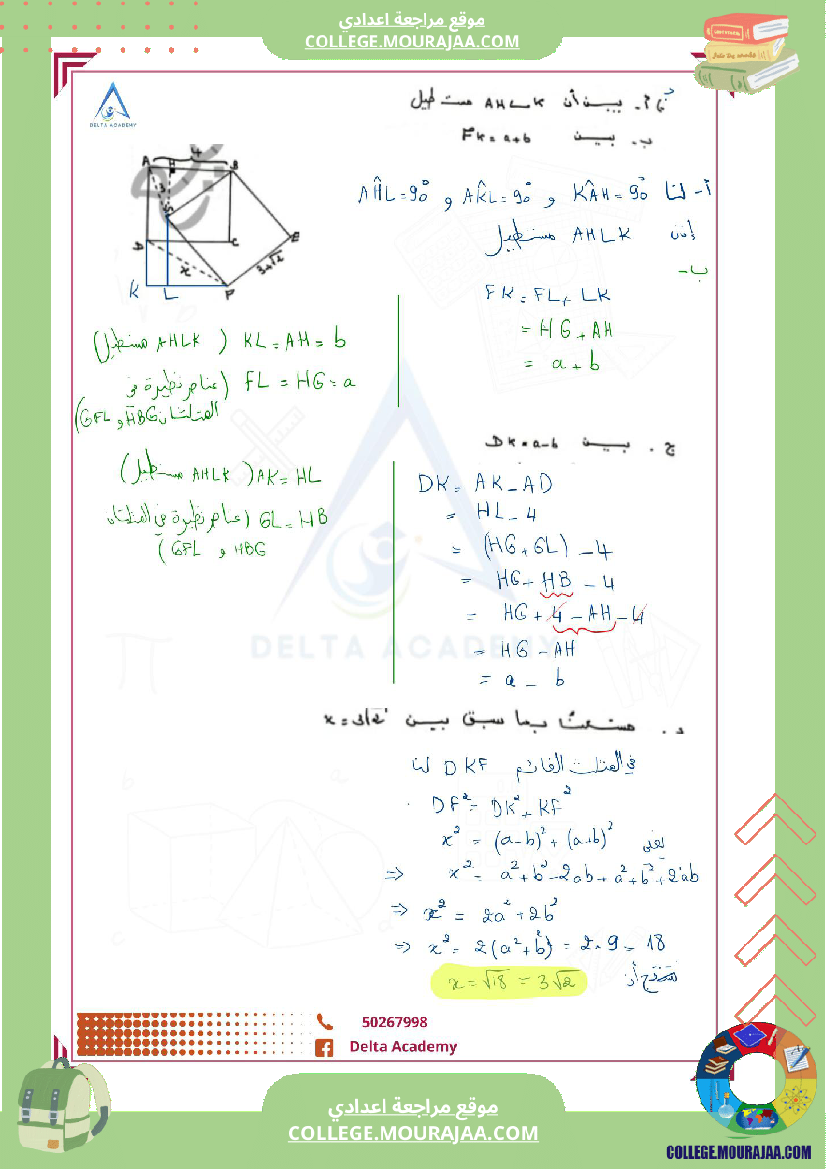 موقع مراجعة اعدادي
COLLEGE.MOURAJAA.COM
DELTA ACADEMY
أ. بين أن AHLK مستطيل
ب. بين FK = a+b
أ- لنا KÂH = 90° و AK̂L = 90° و AĤL = 90°
إذن AHLK مستطيل
ب-
FK = FL + LK
= HG + AH
= a + b
A H B
4
3
G
D C
E
x
3√2
K L F
KL = AH = b (AHLK مستطيل)
FL = HG = a (عناصر نظيرة في
المثلثان HBG و GFL)
ج. بين DK = a-b
DK = AK - AD
= HL - 4
= (HG + GL) - 4
= HG + HB - 4
= HG + 4 - AH - 4
= HG - AH
= a - b
AK = HL (AHLK مستطيل)
GL = HB (عناصر نظيرة في المثلثان
HBG و GFL)
د. بما سبق بين x = 3√2
في المثلث القائم DKF لنا
DF² = DK² + KF²
يعني x² = (a-b)² + (a+b)²
=> x² = a² + b² - 2ab + a² + b² + 2ab
=> x² = 2a² + 2b²
=> x² = 2(a² + b²) = 2 × 9 = 18
نستنتج أن x = √18 = 3√2
DELTA ACADEMY
50267998
Delta Academy
موقع مراجعة اعدادي
COLLEGE.MOURAJAA.COM
COLLEGE.MOURAJAA.COM